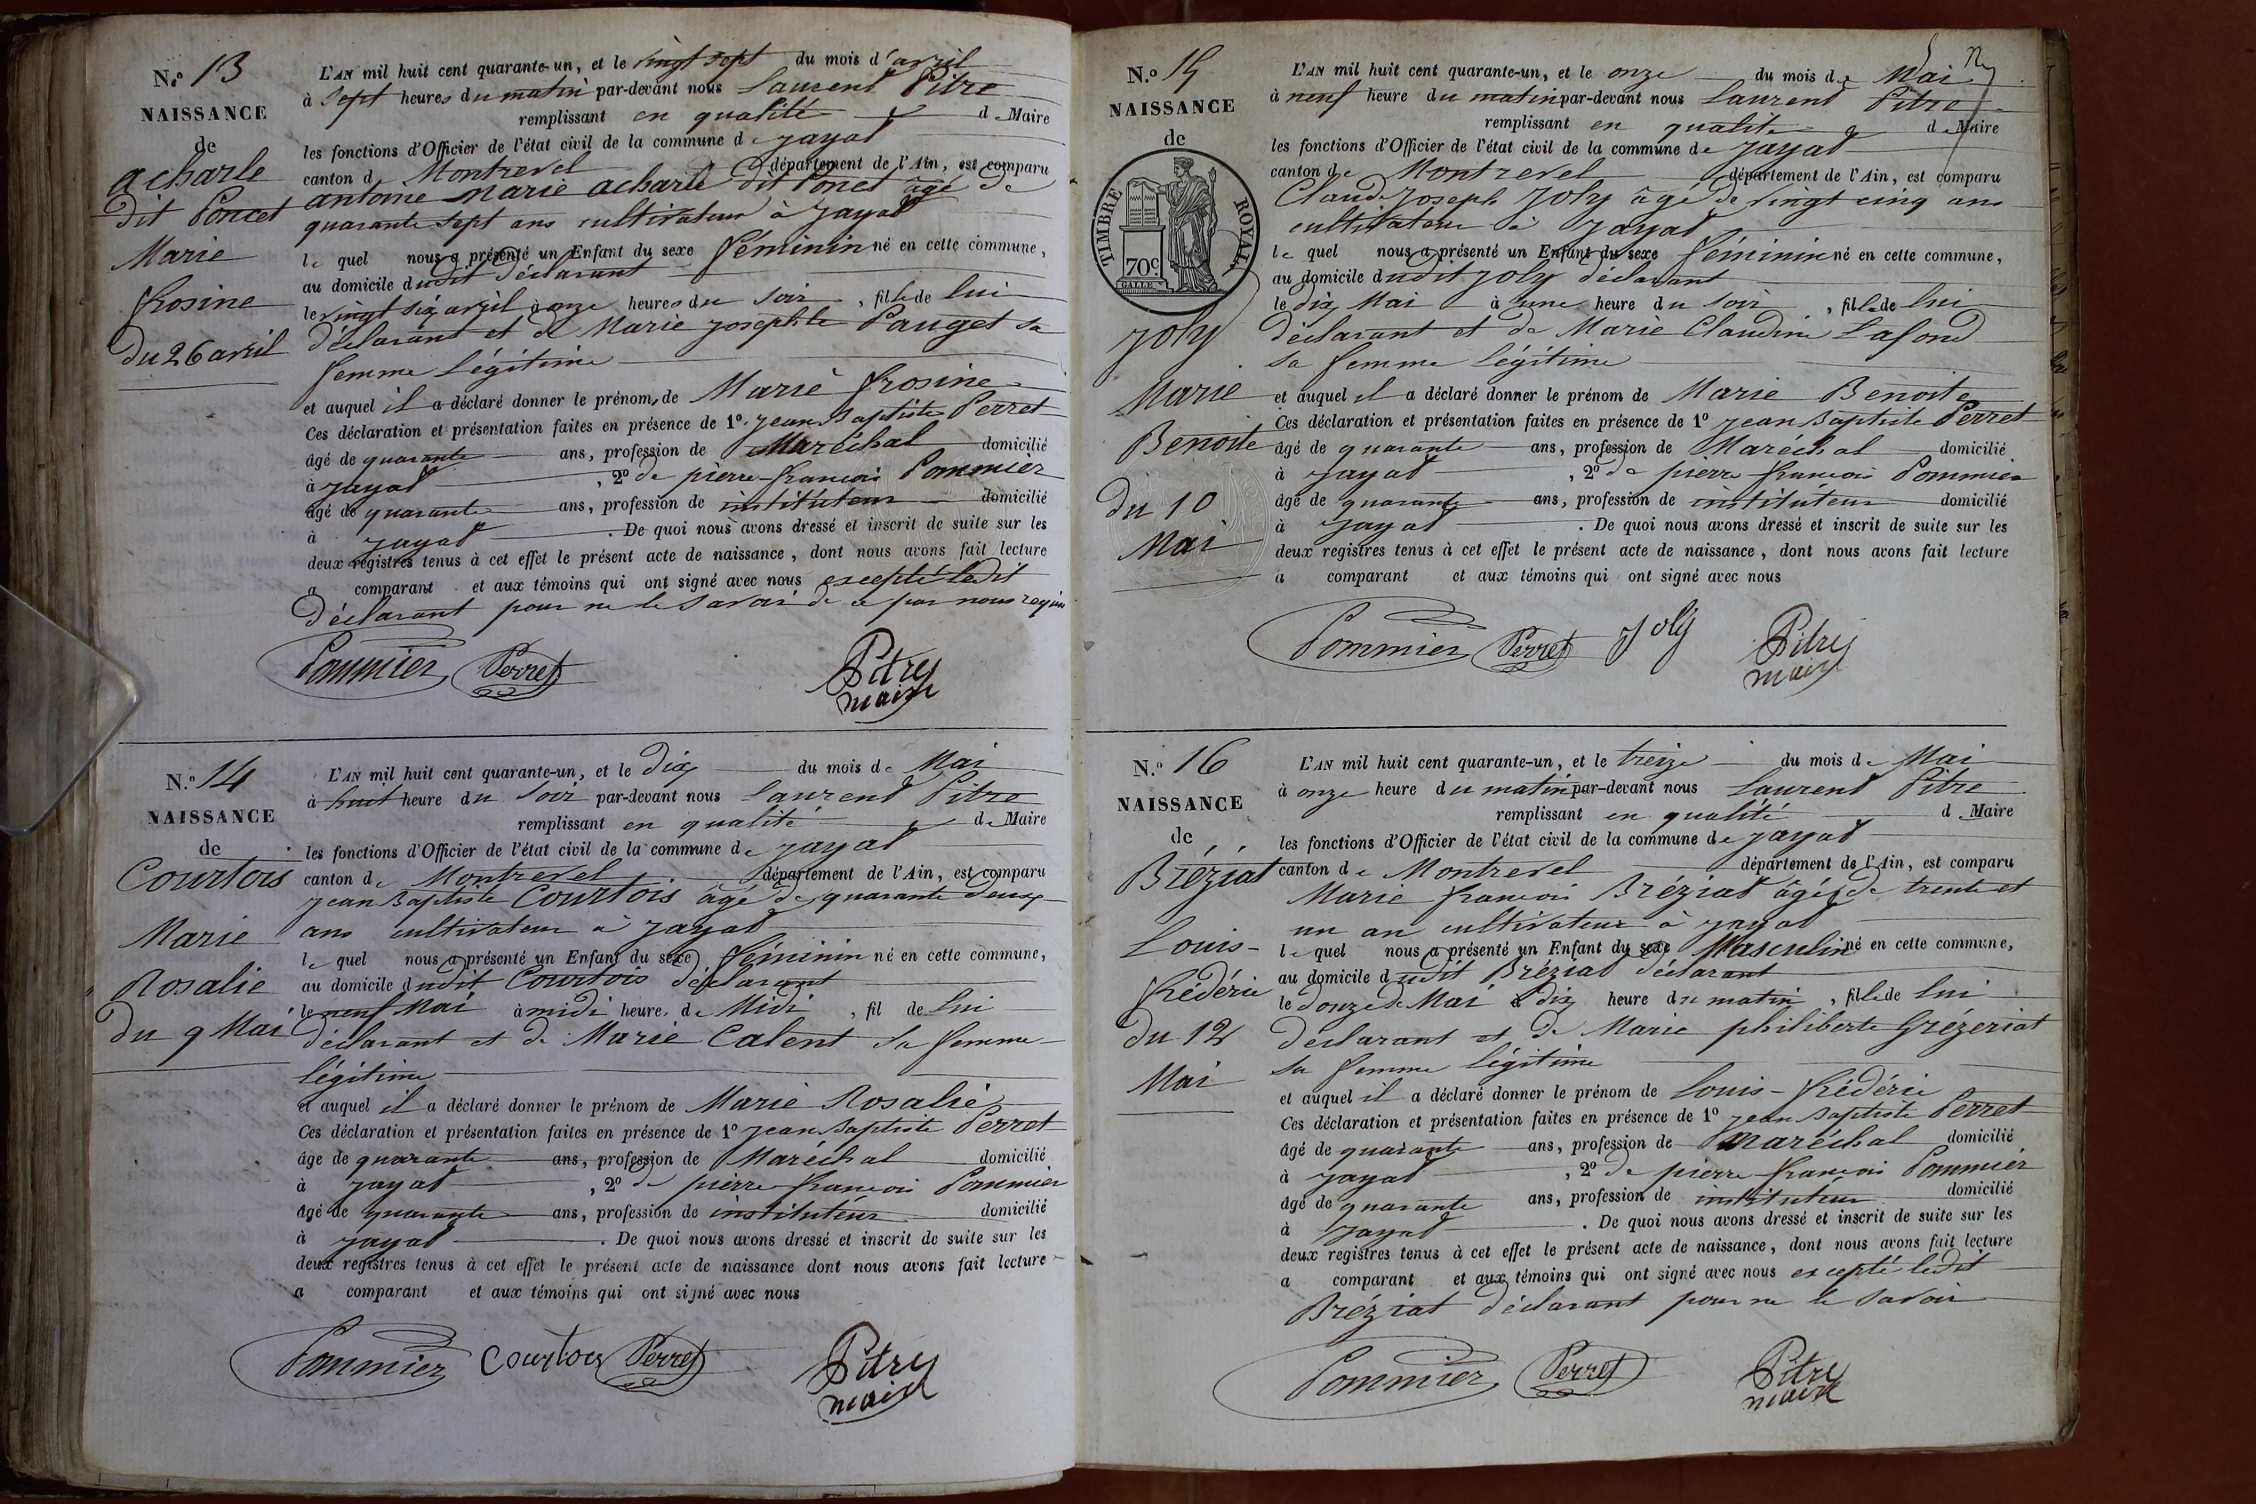 N.o 13
NAISSANCE
de
acharle
dit Poncet
Marie
frosine
du 26 avril
L'AN mil huit cent quarante-un, et le vingt sept du mois d'avril
à sept heures du matin par-devant nous Laurent Pitre
remplissant en qualité de Maire
les fonctions d'Officier de l'état civil de la commune de jayat
canton d Montrevel département de l'Ain, est comparu
antoine marie acharle dit Poncet âgé de
quarante sept ans cultivateur à jayat
le quel nous a présenté un Enfant du sexe féminin né en cette commune,
au domicile dudit déclarant
le vingt six avril à onze heures du soir, fille de lui
déclarant et de Marie josephte Pauget sa
femme légitime
et auquel il a déclaré donner le prénoms de Marie frosine
Ces déclaration et présentation faites en présence de 1o jean Baptiste Perret
âgé de quarante ans, profession de Maréchal domicilié
à jayat, 2o de pierre françois Pommier
âgé de quarante ans, profession de instituteur domicilié
à jayat. De quoi nous avons dressé et inscrit de suite sur les
deux registres tenus à cet effet le présent acte de naissance, dont nous avons fait lecture
a comparant et aux témoins qui ont signé avec nous excepté ledit
déclarant pour ne le savoir de ce par nous requis
Pommier Perret Pitre
maire
N.o 14
NAISSANCE
de
Courtois
Marie
Rosalie
du 9 Mai
L'AN mil huit cent quarante-un, et le dix du mois de Mai
à huit heure du soir par-devant nous Laurent Pitre
remplissant en qualité de Maire
les fonctions d'Officier de l'état civil de la commune de jayat
canton de Montrevel département de l'Ain, est comparu
jean Baptiste Courtois âgé de quarante deux
ans cultivateur à jayat
le quel nous a présenté un Enfant du sexe féminin né en cette commune,
au domicile dudit Courtois déclarant
le neuf Mai à midi heure de Midi, fil de lui
déclarant et de Marie Calent sa femme
légitime
et auquel il a déclaré donner le prénom de Marie Rosalie
Ces déclaration et présentation faites en présence de 1o jean Baptiste Perret
âge de quarante ans, profession de Maréchal domicilié
à jayat, 2o de pierre françois Pommier
âgé de quarante ans, profession de instituteur domicilié
à jayat. De quoi nous avons dressé et inscrit de suite sur les
deux registres tenus à cet effet le présent acte de naissance dont nous avons fait lecture
a comparant et aux témoins qui ont signé avec nous
Pommier Courtois Perret Pitre
maire
N.o 15
NAISSANCE
de
TIMBRE ROYAL
70c
GALLE
joly
Marie
Benoite
du 10
Mai
L'AN mil huit cent quarante-un, et le onze du mois de Mai
à neuf heure du matin par-devant nous Laurent Pitre
remplissant en qualité de Maire
les fonctions d'Officier de l'état civil de la commune de jayat
canton de Montrevel département de l'Ain, est comparu
Claude Joseph Joly âgé de vingt cinq ans
cultivateur à jayat
le quel nous a présenté un Enfant du sexe féminin né en cette commune,
au domicile dudit joly déclarant
le dix Mai à une heure du soir, fille de lui
déclarant et de Marie Claudine Lafond
sa femme légitime
et auquel il a déclaré donner le prénom de Marie Benoite
Ces déclaration et présentation faites en présence de 1o jean Baptiste Perret
âgé de quarante ans, profession de Maréchal domicilié
à jayat, 2o de pierre françois Pommier
âgé de quarante ans, profession de instituteur domicilié
à jayat. De quoi nous avons dressé et inscrit de suite sur les
deux registres tenus à cet effet le présent acte de naissance, dont nous avons fait lecture
a comparant et aux témoins qui ont signé avec nous
Pommier Perret joly Pitre
maire
N.o 16
NAISSANCE
de
Bréziat
Louis-
frédéric
du 12
Mai
L'AN mil huit cent quarante-un, et le treize du mois de Mai
à onze heure du matin par-devant nous Laurent Pitre
remplissant en qualité d Maire
les fonctions d'Officier de l'état civil de la commune de jayat
canton de Montrevel département de l'Ain, est comparu
Marie françois Bréziat âgé de trente et
un an cultivateur à jayat
le quel nous a présenté un Enfant du sexe Masculin né en cette commune,
au domicile dudit Bréziat déclarant
le douze de Mai à dix heure du matin, fils de lui
déclarant et de Marie philiberte Grézeriat
sa femme légitime
et auquel il a déclaré donner le prénom de Louis-frédéric
Ces déclaration et présentation faites en présence de 1o jean Baptiste Perret
âgé de quarante ans, profession de Maréchal domicilié
à jayat, 2o de pierre françois Pommier
âgé de quarante ans, profession de instituteur domicilié
à jayat. De quoi nous avons dressé et inscrit de suite sur les
deux registres tenus à cet effet le présent acte de naissance, dont nous avons fait lecture
a comparant et aux témoins qui ont signé avec nous excepté ledit
Bréziat déclarant pour ne le savoir
Pommier Perret Pitre
maire